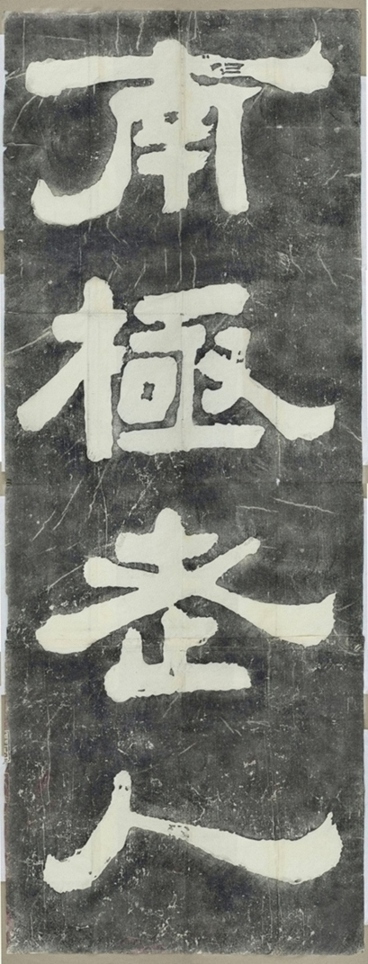 南極老人